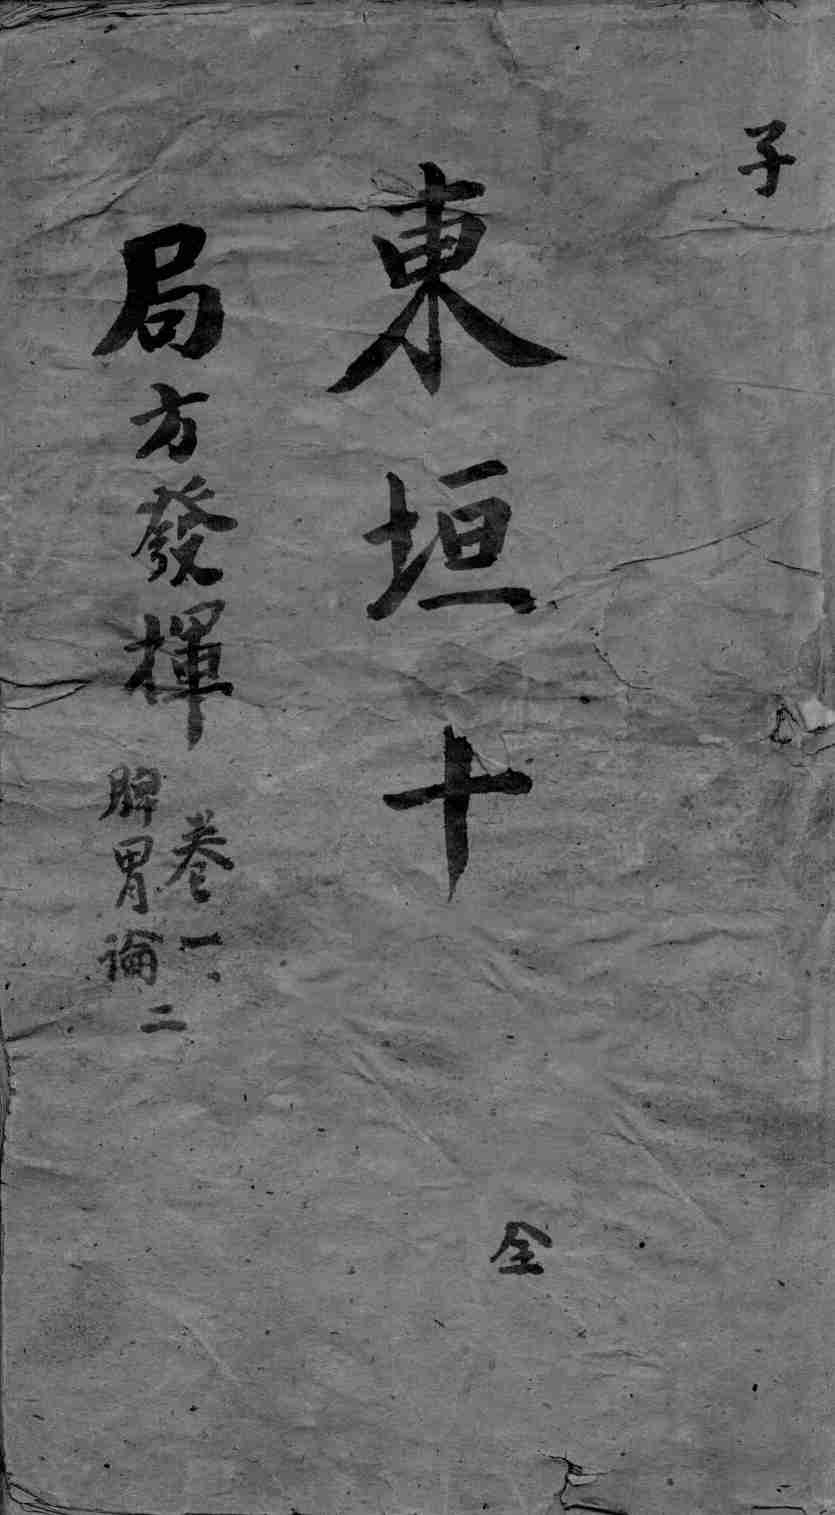 子
東垣十
全
局方發揮
卷一
脾胃論二